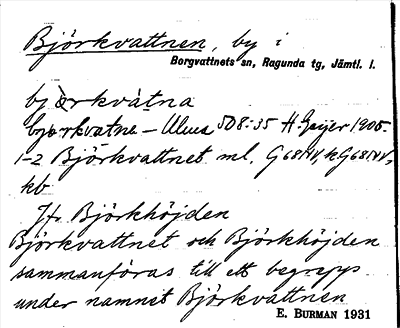 Björkvattnen, by i
Borgvattnets sn, Ragunda tg, Jämtl. l.
bjòrkvàtna
bjørkvatne – Ulma 508:35 H. Geijer 1905.
1-2 Björkvattnet ml. G68NV, k G68NV,
kb
Jfr Björkhöjden
Björkvattnet och Björkhöjden
sammanföras till ett begrepp
under namnet Björkvattnen
E. BURMAN 1931